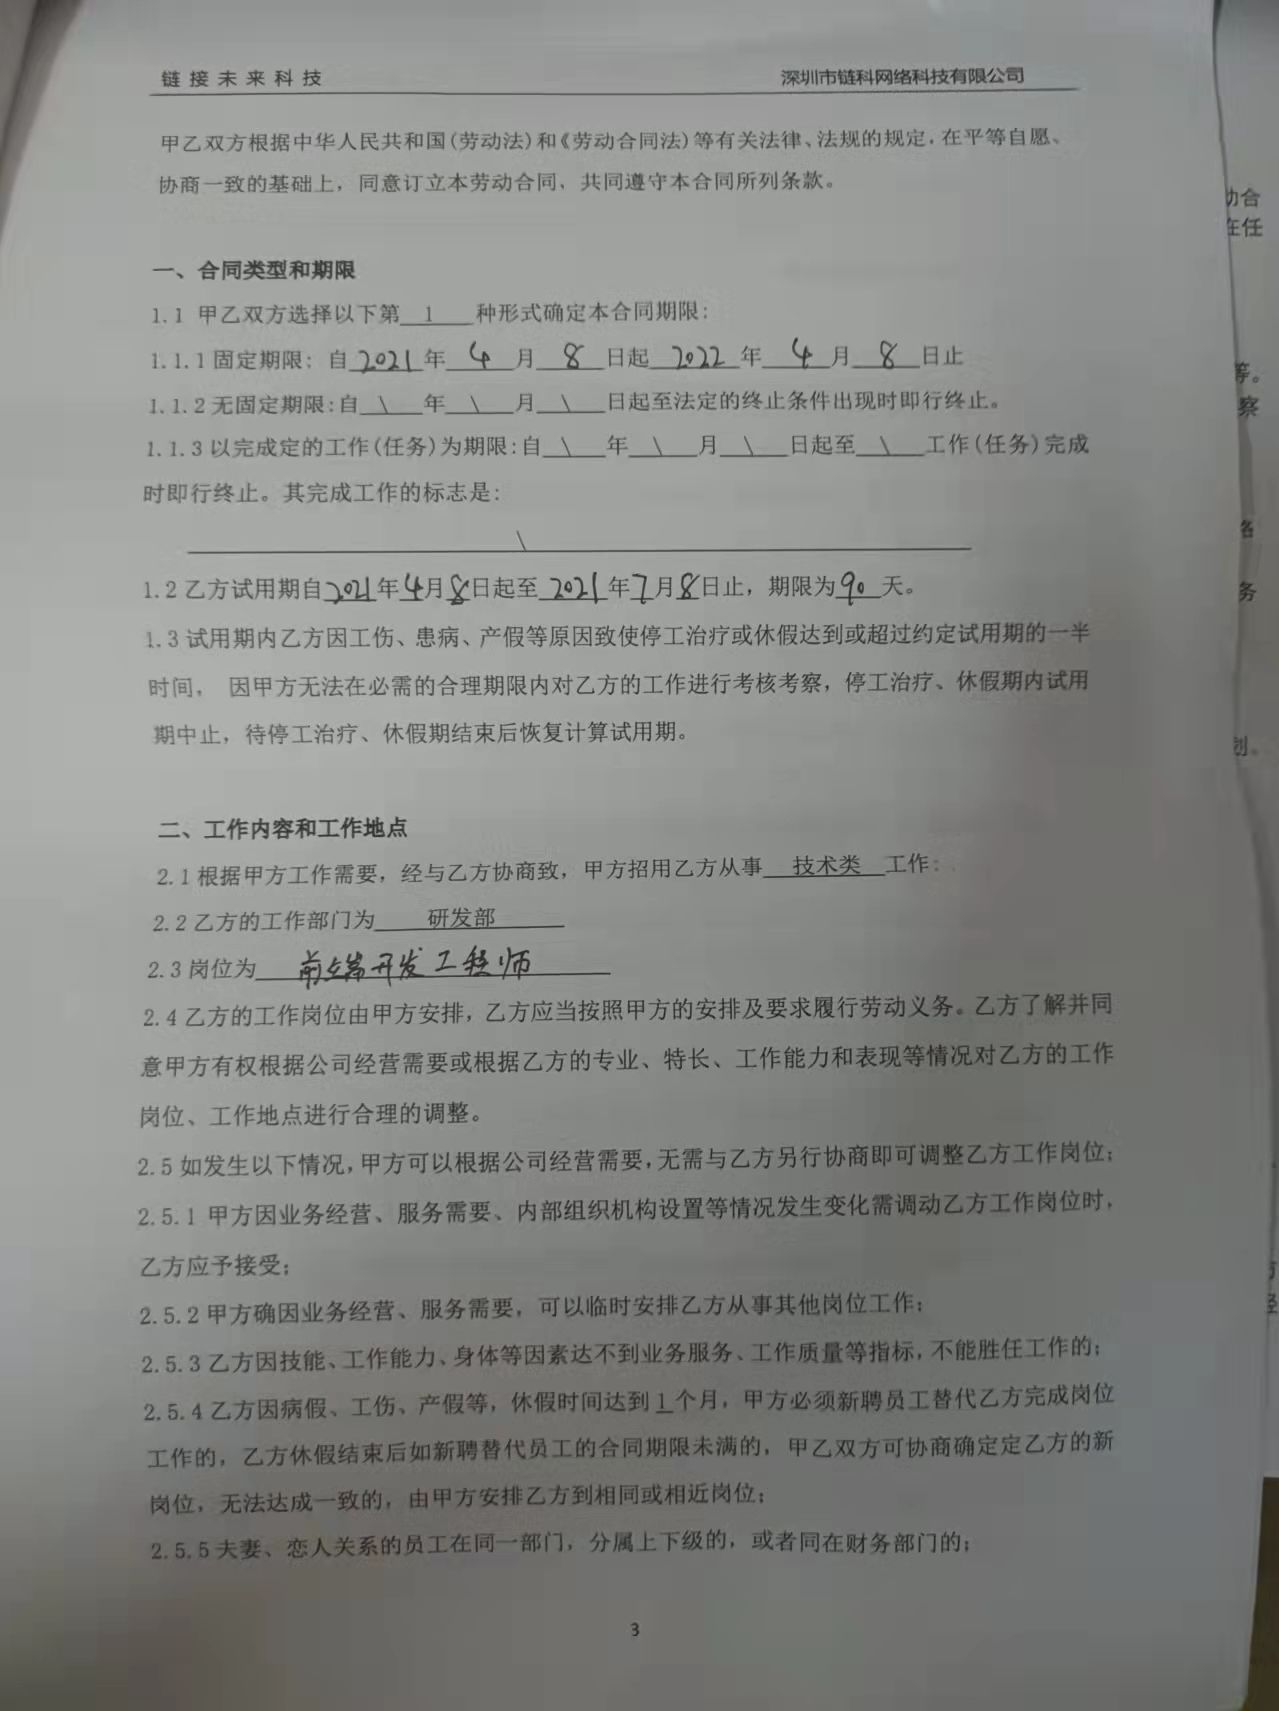 链接未来科技
深圳市链科网络科技有限公司
甲乙双方根据中华人民共和国(劳动法)和《劳动合同法)等有关法律、法规的规定,在平等自愿、
协商一致的基础上，同意订立本劳动合同、共同遵守本合同所列条款。
一、合同类型和期限
1.1 甲乙双方选择以下第 1 种形式确定本合同期限:
1.1.1固定期限: 自 2021 年 4 月 8 日起 2022 年 4 月 8 日止
1.1.2无固定期限:自 \ 年 \ 月 \ 日起至法定的终止条件出现时即行终止。
1.1.3以完成定的工作(任务)为期限:自 \ 年 \ 月 \ 日起至 \ 工作(任务)完成
时即行终止。其完成工作的标志是:
\
1.2乙方试用期自2021年4月8日起至 2021 年7月8日止，期限为90天。
1.3试用期内乙方因工伤、患病、产假等原因致使停工治疗或休假达到或超过约定试用期的一半
时间， 因甲方无法在必需的合理期限内对乙方的工作进行考核考察，停工治疗、休假期内试用
期中止，待停工治疗、休假期结束后恢复计算试用期。
二、工作内容和工作地点
2.1根据甲方工作需要，经与乙方协商致，甲方招用乙方从事 技术类 工作:
2.2乙方的工作部门为 研发部
2.3岗位为 前端开发工程师
2.4乙方的工作岗位由甲方安排，乙方应当按照甲方的安排及要求履行劳动义务。乙方了解并同
意甲方有权根据公司经营需要或根据乙方的专业、特长、工作能力和表现等情况对乙方的工作
岗位、工作地点进行合理的调整。
2.5如发生以下情况,甲方可以根据公司经营需要,无需与乙方另行协商即可调整乙方工作岗位;
2.5.1甲方因业务经营、服务需要、内部组织机构设置等情况发生变化需调动乙方工作岗位时，
乙方应予接受;
2.5.2甲方确因业务经营、服务需要，可以临时安排乙方从事其他岗位工作;
2.5.3乙方因技能、工作能力、身体等因素达不到业务服务、工作质量等指标，不能胜任工作的;
2.5.4乙方因病假、工伤、产假等，休假时间达到1个月，甲方必须新聘员工替代乙方完成岗位
工作的，乙方休假结束后如新聘替代员工的合同期限未满的，甲乙双方可协商确定定乙方的新
岗位，无法达成一致的，由甲方安排乙方到相同或相近岗位;
2.5.5夫妻、恋人关系的员工在同一部门，分属上下级的，或者同在财务部门的;
3
合
在任
等。
察
务
划。